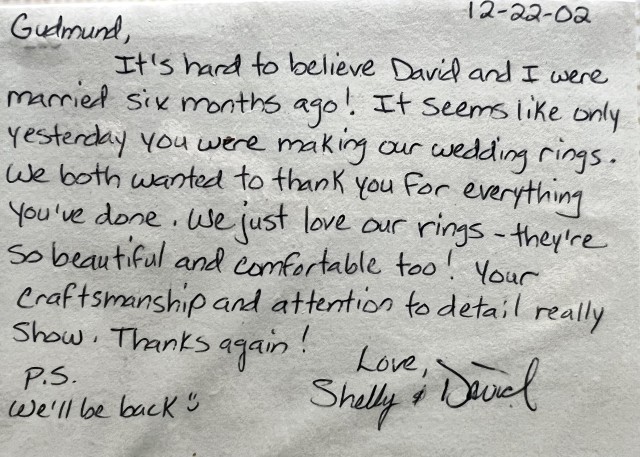 12-22-02
Gudmund,
It's hard to believe David and I were
married six months ago! It seems like only
yesterday you were making our wedding rings.
We both wanted to thank you for everything
you've done. We just love our rings - they're
so beautiful and comfortable too! Your
craftsmanship and attention to detail really
show. Thanks again!
Love,
Shelly & David
P.S.
We'll be back ☺